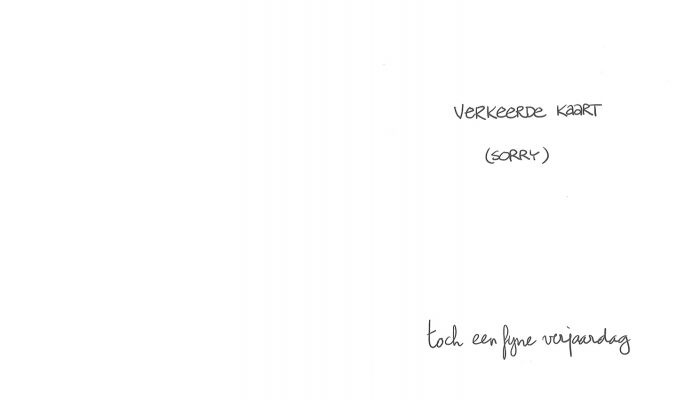 VERKEERDE KAART
(SORRY)
toch een fyne verjaardag